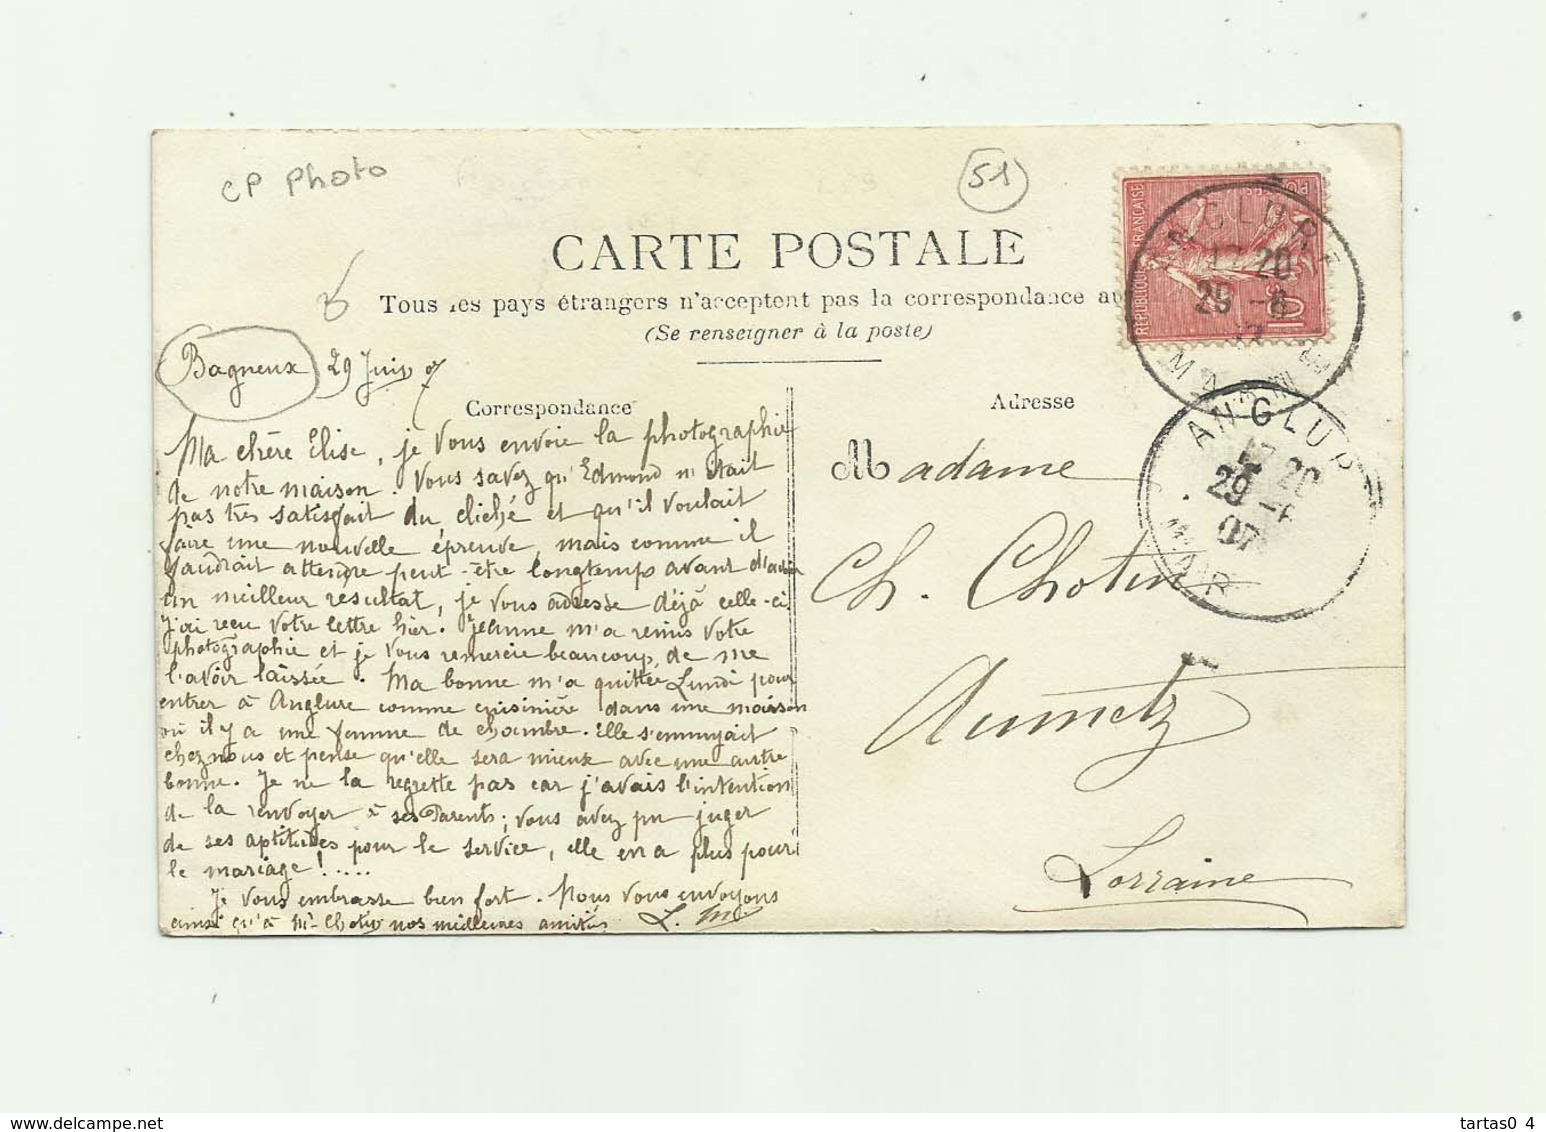 CP Photo
51
CARTE POSTALE
Tous les pays étrangers n'acceptent pas la correspondance au
(Se renseigner à la poste)
RÉPUBLIQUE FRANÇAISE
POSTES
10
ANGLURE
17 20
29 -6
MARNE
Bagneux 29 Juin 07
Correspondance
Ma chère Elise, je vous envoie la photographie
de notre maison. Vous savez qu'Edmond n'était
pas très satisfait du cliché et qu'il voulait
faire une nouvelle épreuve, mais comme il
faudrait attendre peut-être longtemps avant d'avoir
un meilleur resultat, je vous adresse déjà celle-ci.
J'ai reçu votre lettre hier. Jeanne m'a remis votre
photographie et je vous remercie beaucoup de me
l'avoir laissée. Ma bonne m'a quittée Lundi pour
entrer à Anglure comme cuisinière dans une maison
où il y a une femme de chambre. Elle s'ennuyait
chez nous et pense qu'elle sera mieux avec une autre
bonne. Je ne la regrette pas car j'avais l'intention
de la renvoyer à ses Parents; vous avez pu juger
de ses aptitudes pour le service, elle en a plus pour
le mariage!.....
Je vous embrasse bien fort. Nous vous envoyons
ainsi qu'à Mr Chotin nos meilleures amitiés
Adresse
ANGLUR
17 20
29 -6
07
MAR
Madame
Ch. Chotin
Aumetz
Lorraine
tartas0 4